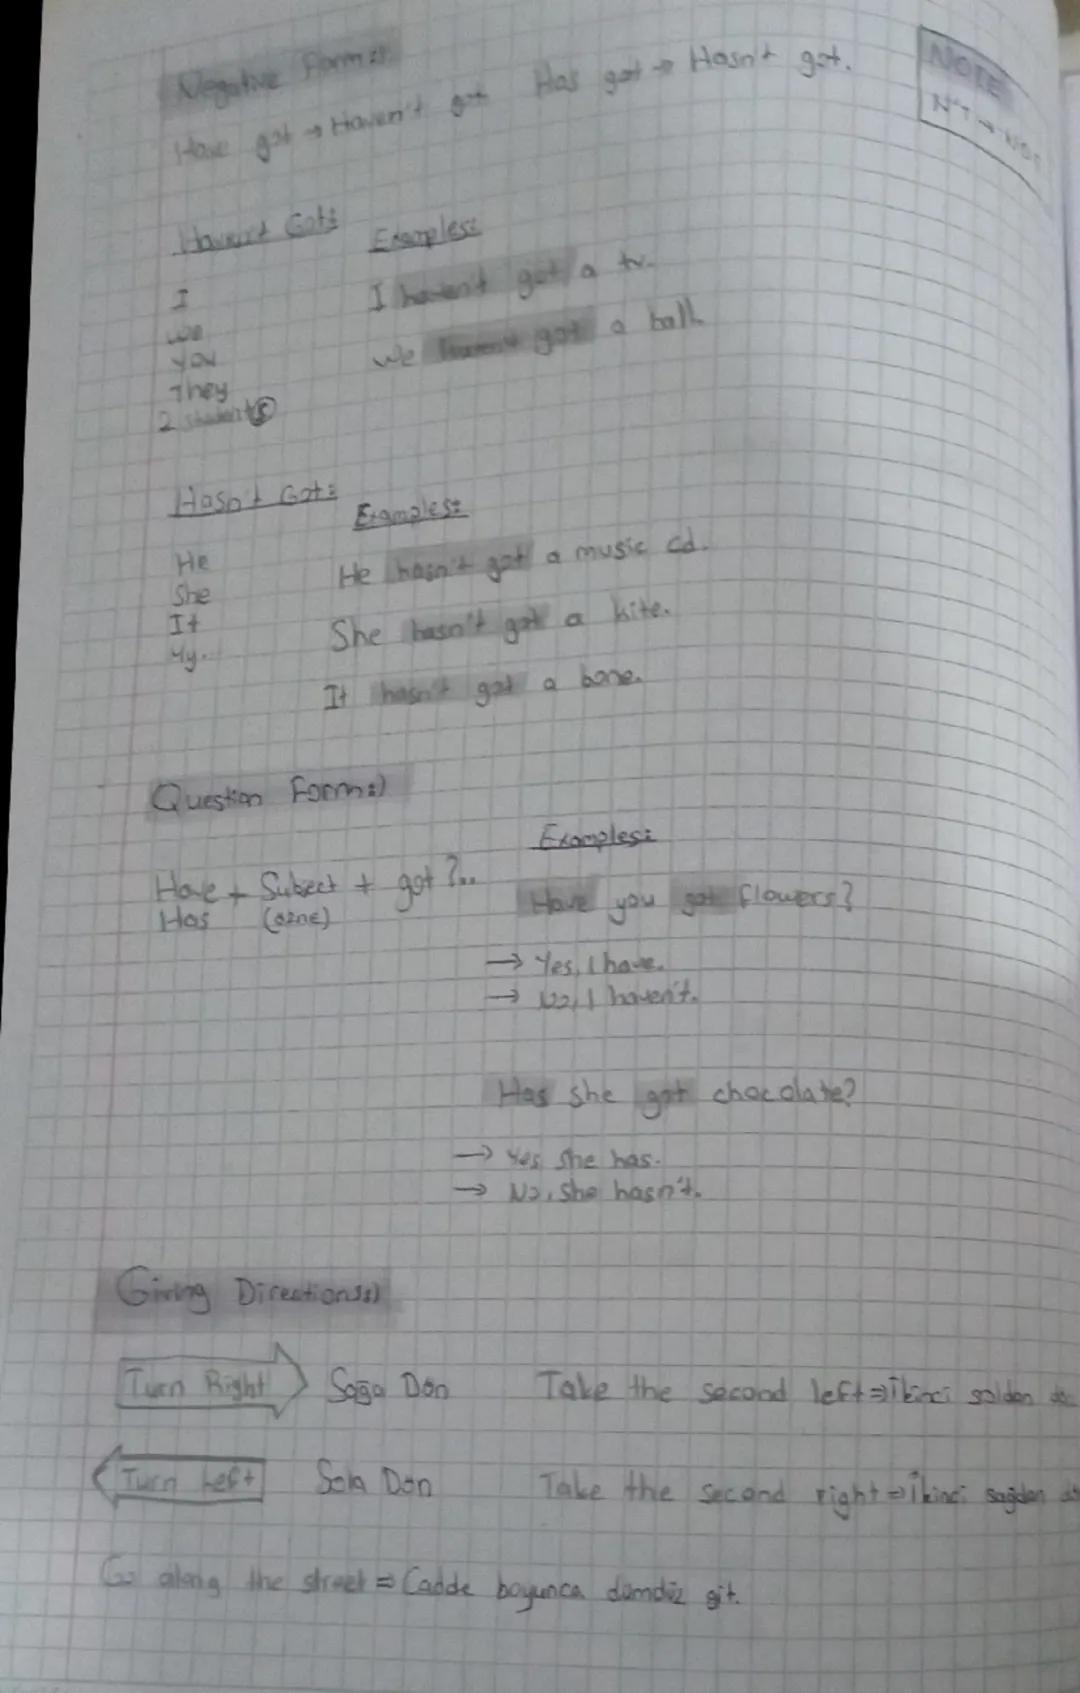 Negative Form:)
Have got → Haven't got Has got → Hasn't got.
NOTE
N'T → NOT
Haven't Got:
Examples:
I
We
You
They
2 students
I haven't got a tv.
We haven't got a ball.
Hasn't Got:
Examples:
He
She
It
My.
He hasn't got a music cd.
She hasn't got a kite.
It hasn't got a bone.
Question Form:)
Examples:
Have + Subect + got ?...
Has (özne)
Have you got flowers?
→ Yes, I have.
→ No, I haven't.
Has she got chocolate?
→ Yes, she has.
→ No, she hasn't.
Giving Directions:)
Turn Right Sağa Dön Take the second left ⇒ İkinci soldan
Turn Left Sola Dön Take the second right ⇒ İkinci sağdan
Go along the street ⇒ Cadde boyunca dümdüz git.